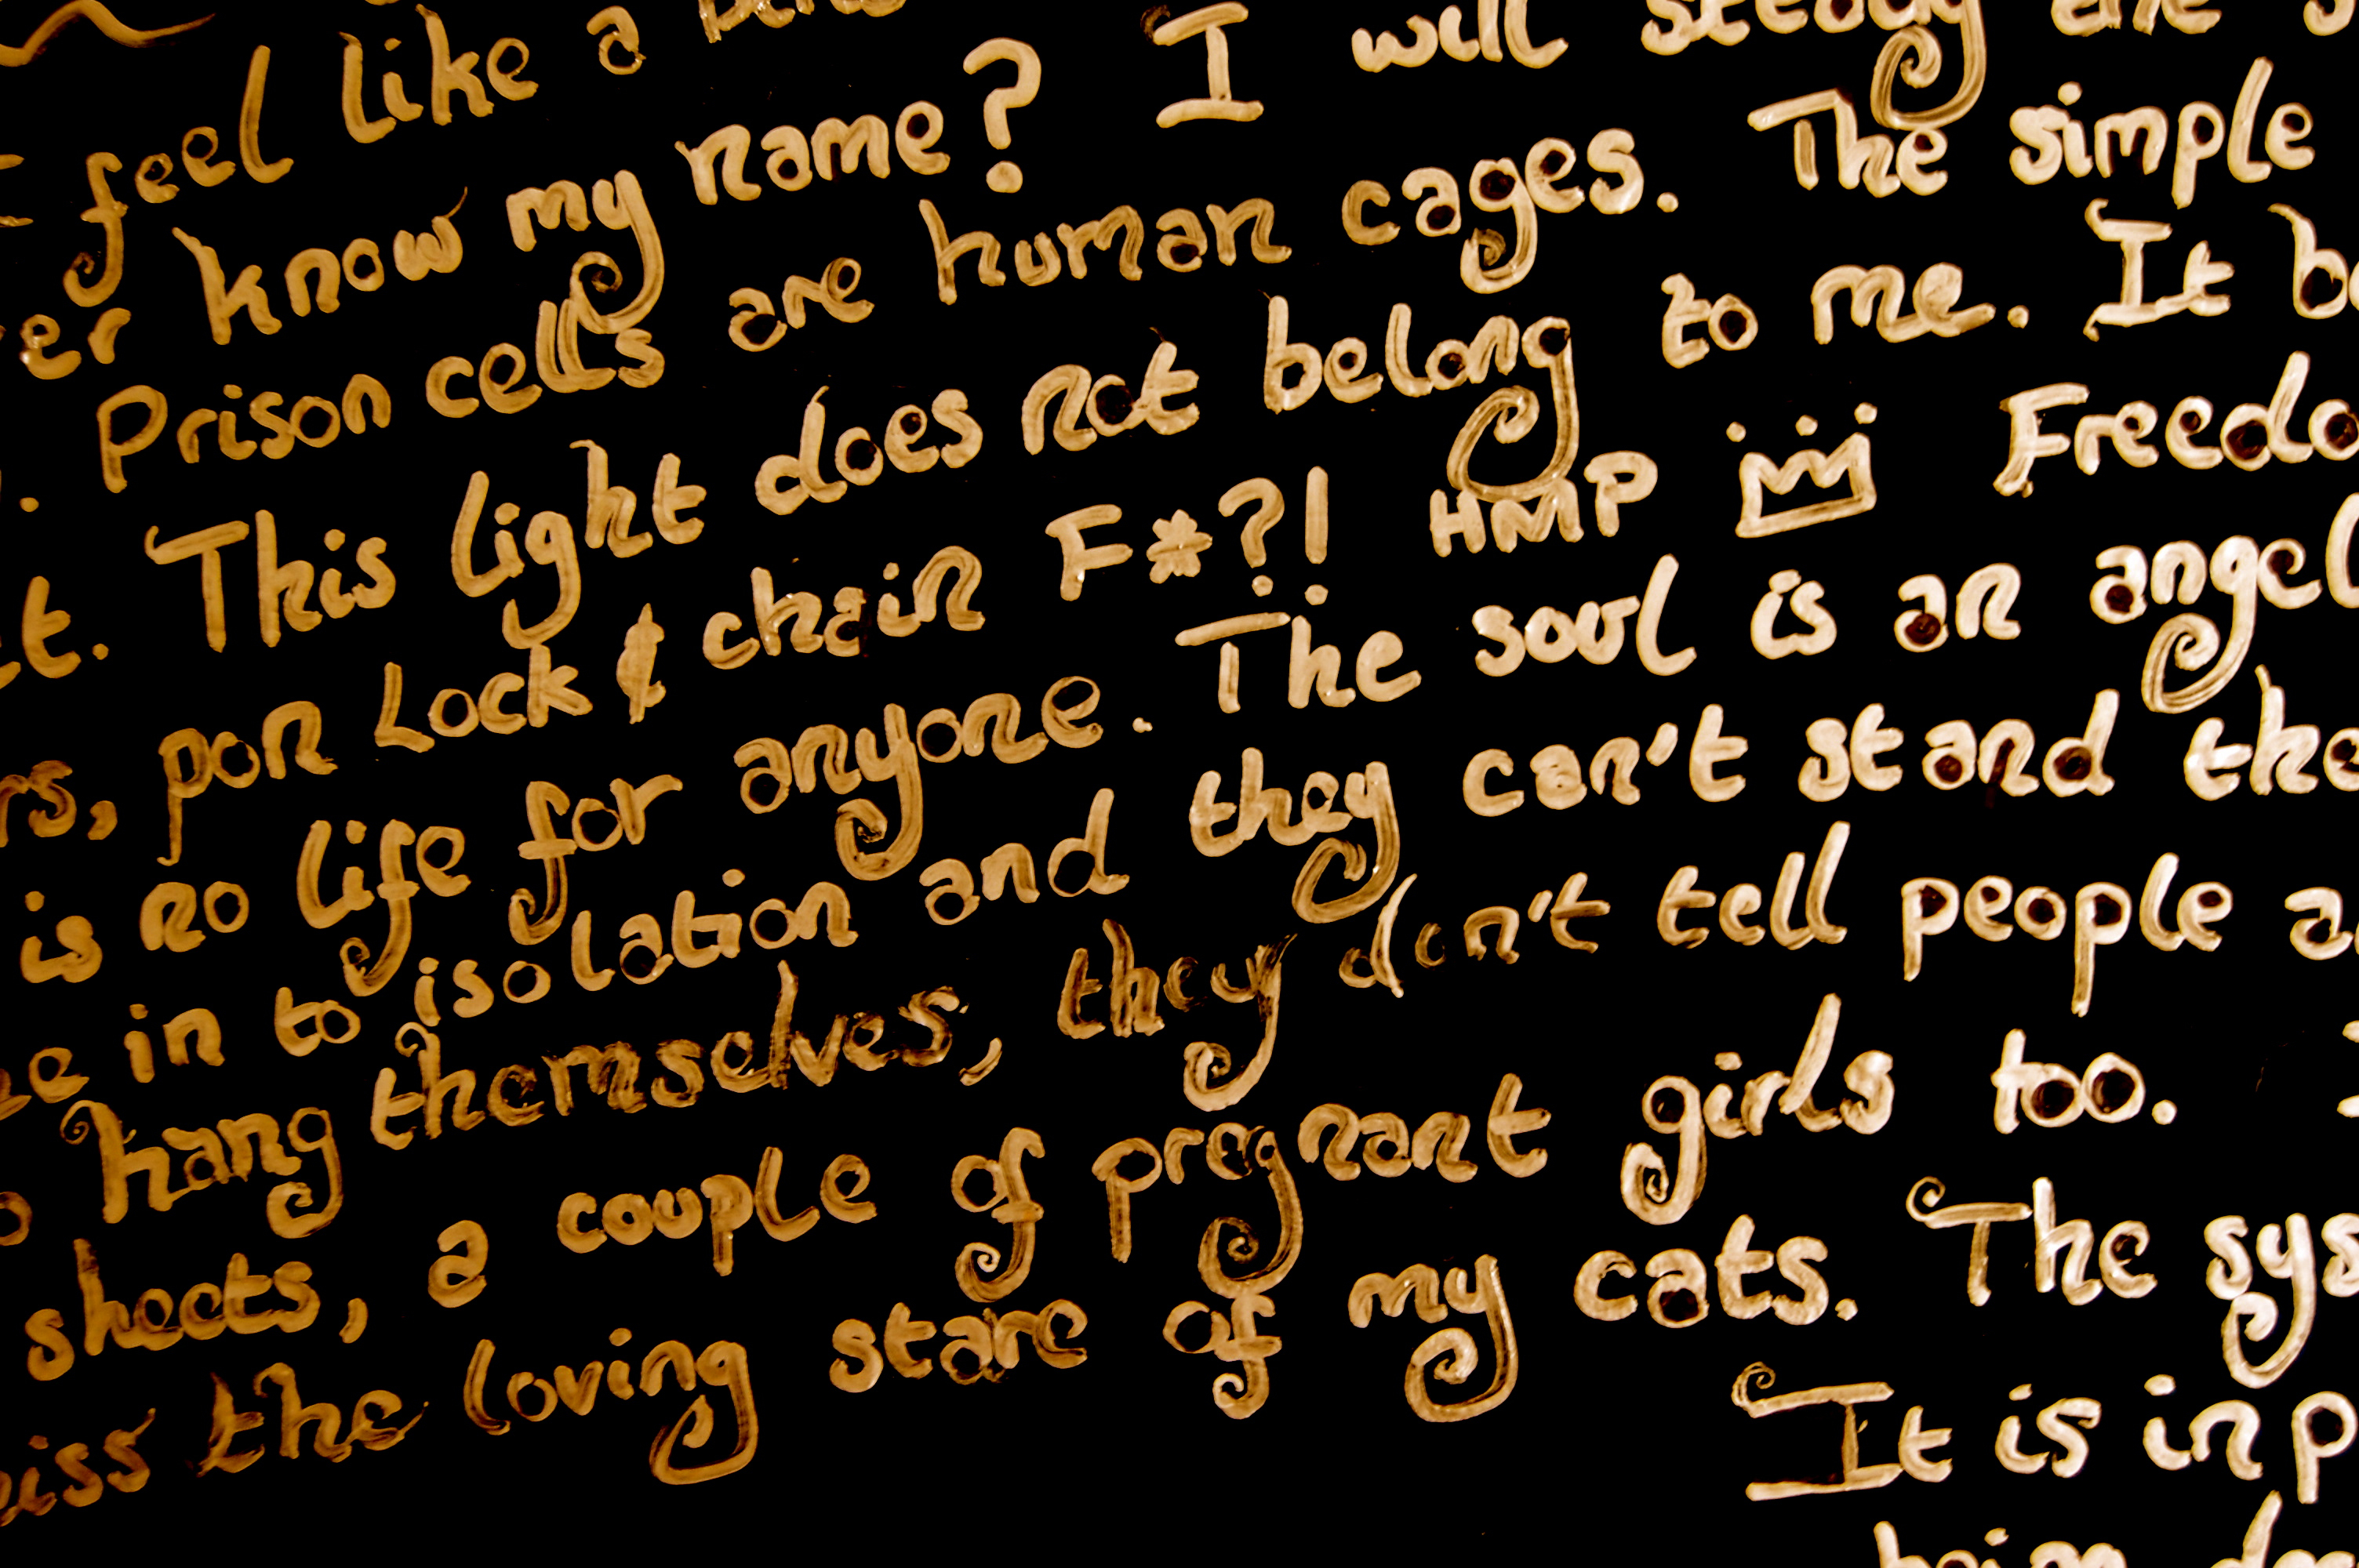 feel like a
er know my name? I will steady the s
. Prison cells are human cages. The simple
t. This light does not belong to me. It b
rs, pon Lock & chain F*?! HMP Freedo
is no life for anyone. The soul is an angel
e in to isolation and they can't stand the
hang themselves, they don't tell people a
sheets, a couple of pregnant girls too.
iss the loving stare of my cats. The sys
It is in p